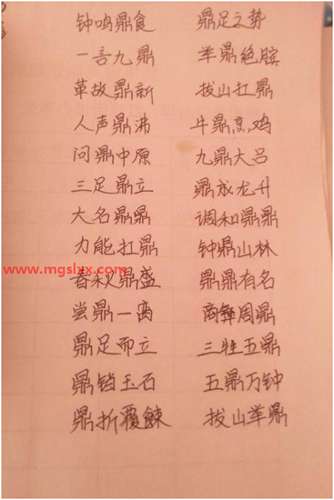 钟鸣鼎食 鼎足之势
一言九鼎 举鼎绝膑
革故鼎新 拔山扛鼎
人声鼎沸 牛鼎烹鸡
问鼎中原 九鼎大吕
三足鼎立 鼎成龙升
大名鼎鼎 调和鼎
力能扛鼎 钟鼎山林
www.mgslxx.com
春秋鼎盛 鼎鼎有名
尝鼎一 商彝周鼎
鼎足而立 三牲五鼎
鼎铛玉石 五鼎万钟
鼎折覆餗 拔山举鼎